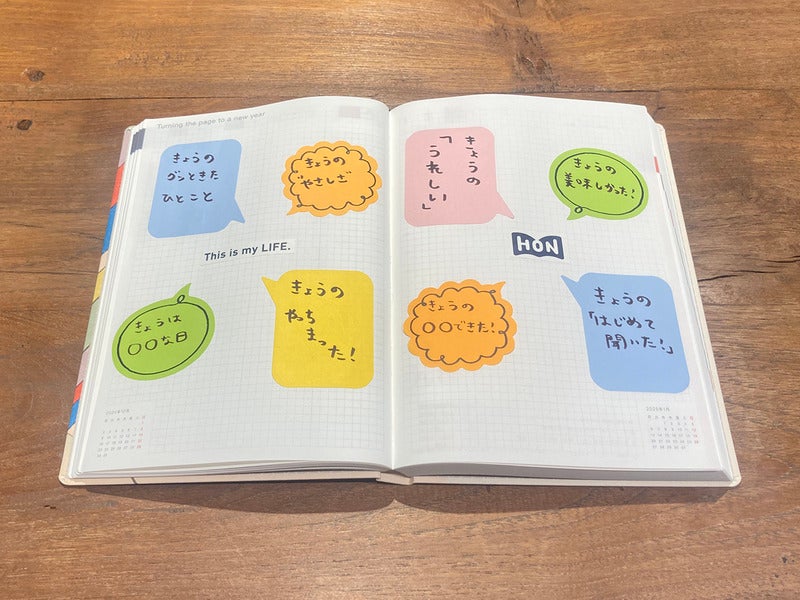 Turning the page to a new year
きょうの
グンときた
ひとこと
きょうの
やさしさ
This is my LIFE.
きょうは
〇〇な日
きょうの
やっち
まった!
きょうの
「うれしい」
きょうの
美味しかった!
HON
きょうの
〇〇できた!
きょうの
「はじめて
聞いた!」
2024年12月
2025年1月